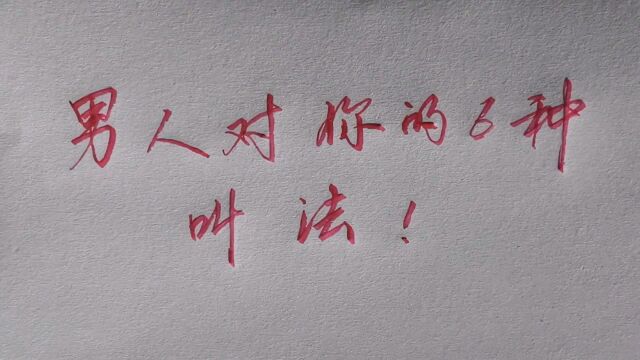 男人对你的6种
叫法！